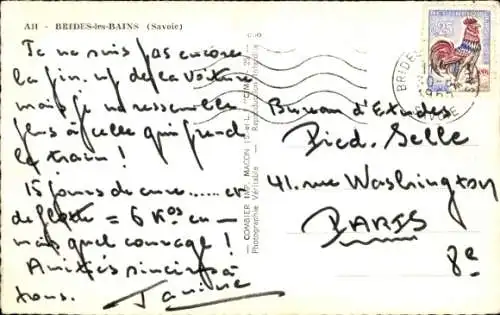 A11 - BRIDES-les-BAINS (Savoie)
Je ne suis pas encore
la pin. up de la voiture
mais je ne ressemble
plus à celle qui prend
le train !
15 jours de cure ...... et
de flotte = 6 Kos en
mais quel courage !
Amitiés sincères à
tous. Janine
COMBIER IMP. MACON
Photographie Véritable - Reproduction Interdite
0,25
Bureau d'Etudes
Pied. Selle
41. rue Washington
PARIS
8e